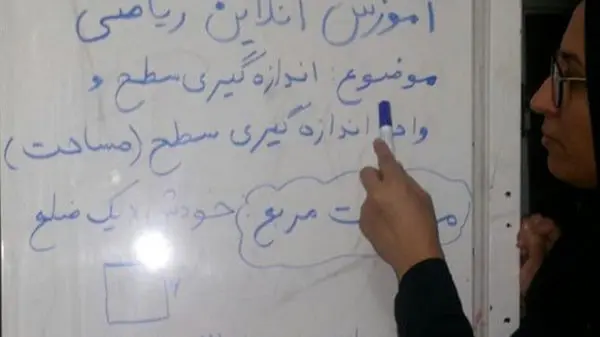 آموزش آنلاین ریاضی
موضوع: اندازه گیری سطح و
واحد اندازه گیری سطح (مساحت)
مربع: خودش × یک ضلع